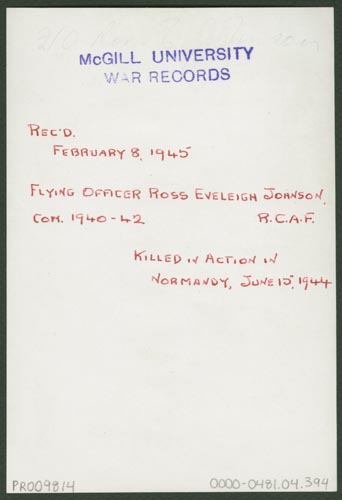 McGILL UNIVERSITY
WAR RECORDS
REC'D.
FEBRUARY 8, 1945
FLYING OFFICER ROSS EVELEIGH JOHNSON,
COM. 1940-42 R.C.A.F.
KILLED IN ACTION IN
NORMANDY, JUNE 15, 1944
PR009814 0000-0481.04.394